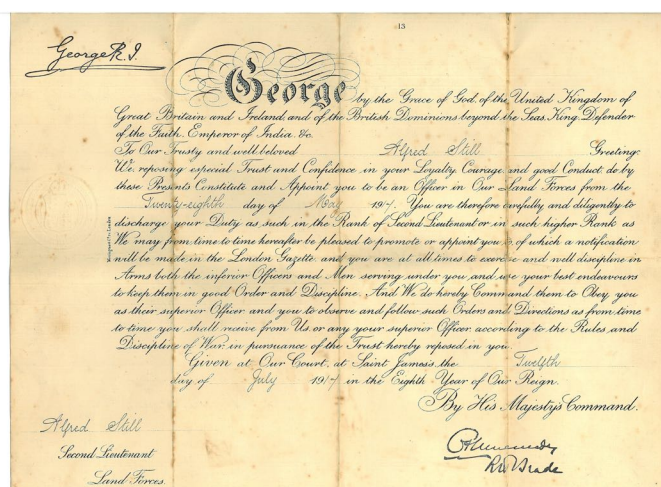 13
George R.I.
George by the Grace of God, of the United Kingdom of
Great Britain and Ireland, and of the British Dominions beyond the Seas, King, Defender
of the Faith, Emperor of India, &c.
To Our Trusty and well beloved Alfred Still Greeting:
We, reposing especial Trust and Confidence in your Loyalty, Courage, and good Conduct, do by
these Presents Constitute and Appoint you to be an Officer in Our Land Forces from the
Twenty-eighth day of May 1917. You are therefore carefully and diligently to
discharge your Duty as such in the Rank of Second Lieutenant or in such higher Rank as
We may from time to time hereafter be pleased to promote or appoint you to, of which a notification
will be made in the London Gazette, and you are at all times to exercise and well discipline in
Arms both the inferior Officers and Men serving under you and use your best endeavours
to keep them in good Order and Discipline. And We do hereby Command them to Obey you
as their superior Officer and you to observe and follow such Orders and Directions as from time
to time you shall receive from Us, or any your superior Officer, according to the Rules and
Discipline of War, in pursuance of the Trust hereby reposed in you.
Given at Our Court, at Saint James's, the Twelfth
day of July 1917 in the Eighth Year of Our Reign.
By His Majesty's Command.
Alfred Still
Second Lieutenant
Land Forces.